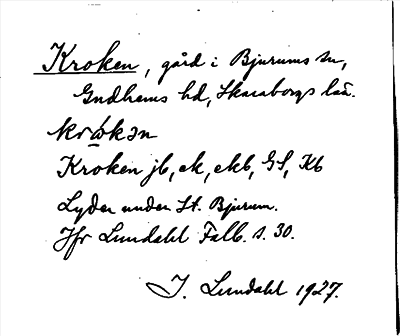 Kroken, gård i Bjurums sn,
Gudhems hd, Skaraborgs län.
krωkən
Kroken jb, ek, ekb, GS, Kb
Lyder under St. Bjurum.
Jfr Lundahl Falb. s. 30.
I. Lundahl 1927.